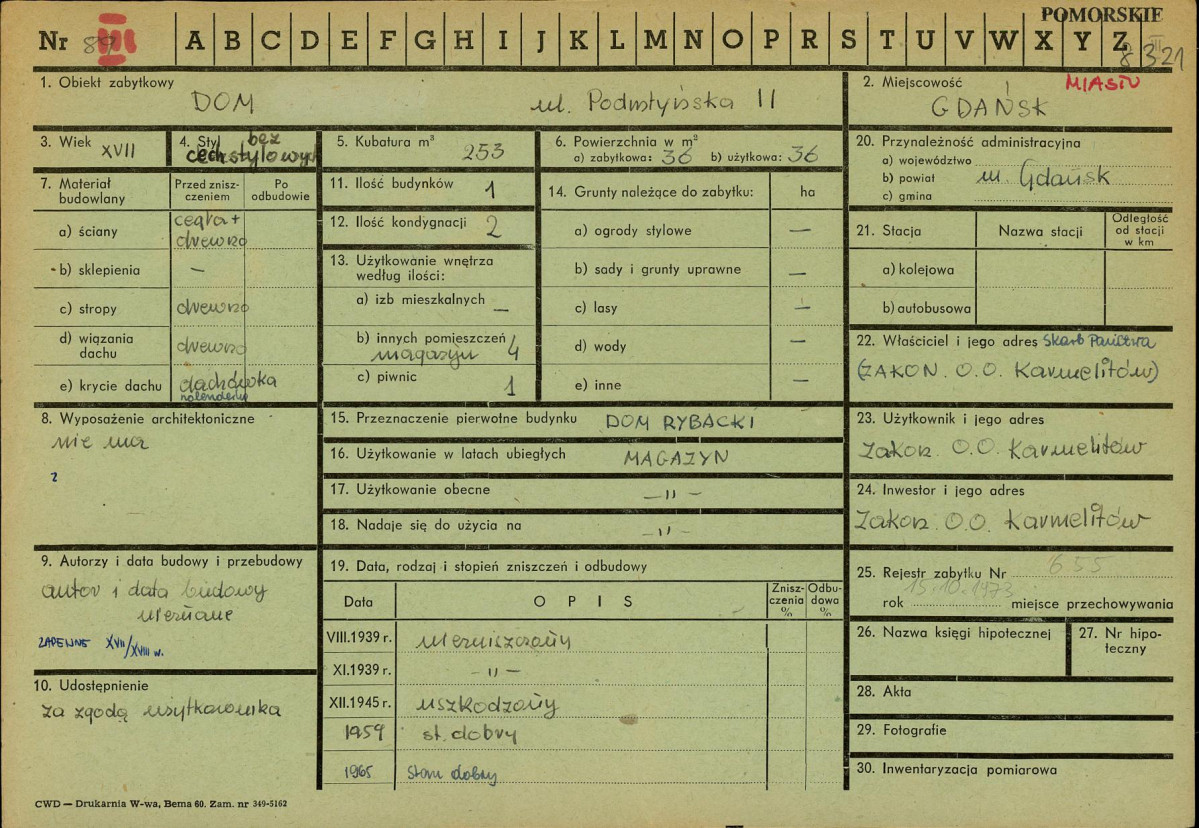 POMORSKIE
Nr 89 III A B C D E F G H I J K L M N O P R S T U V W X Y Z
8321
1. Obiekt zabytkowy
DOM ul. Podmłyńska 11
2. Miejscowość MIASTO
GDAŃSK
3. Wiek XVII
4. Styl bez
cech stylowych
5. Kubatura m³ 253
6. Powierzchnia w m²
a) zabytkowa: 36 b) użytkowa: 36
20. Przynależność administracyjna
a) województwo
b) powiat m. Gdańsk
c) gmina
7. Materiał budowlany
Przed zniszczeniem
Po odbudowie
a) ściany cegła + drewno
b) sklepienia —
c) stropy drewno
d) wiązania dachu drewno
e) krycie dachu dachówka
holenderka
11. Ilość budynków 1
12. Ilość kondygnacji 2
13. Użytkowanie wnętrza
według ilości:
a) izb mieszkalnych —
b) innych pomieszczeń 4
magazyn
c) piwnic 1
14. Grunty należące do zabytku: ha
a) ogrody stylowe —
b) sady i grunty uprawne —
c) lasy —
d) wody —
e) inne —
21. Stacja Nazwa stacji Odległość od stacji w km
a) kolejowa
b) autobusowa
22. Właściciel i jego adres Skarb Państwa
(ZAKON O.O. Karmelitów)
8. Wyposażenie architektoniczne
nie ma
2
15. Przeznaczenie pierwotne budynku DOM RYBACKI
16. Użytkowanie w latach ubiegłych MAGAZYN
17. Użytkowanie obecne —"—
18. Nadaje się do użycia na —"—
23. Użytkownik i jego adres
Zakon O.O. Karmelitów
24. Inwestor i jego adres
Zakon O.O. Karmelitów
9. Autorzy i data budowy i przebudowy
autor i data budowy
nieznane
ZAPEWNE XVII/XVIII w.
10. Udostępnienie
za zgodą użytkownika
19. Data, rodzaj i stopień zniszczeń i odbudowy
Data OPIS Zniszczenia % Odbudowa %
VIII.1939 r. niezniszczony
XI.1939 r. —"—
XII.1945 r. uszkodzony
1959 st. dobry
1965 stan dobry
25. Rejestr zabytku Nr 655
rok 15.10.1973 miejsce przechowywania
26. Nazwa księgi hipotecznej
27. Nr hipoteczny
28. Akta
29. Fotografie
30. Inwentaryzacja pomiarowa
CWD — Drukarnia W-wa, Bema 60. Zam. nr 349-5162